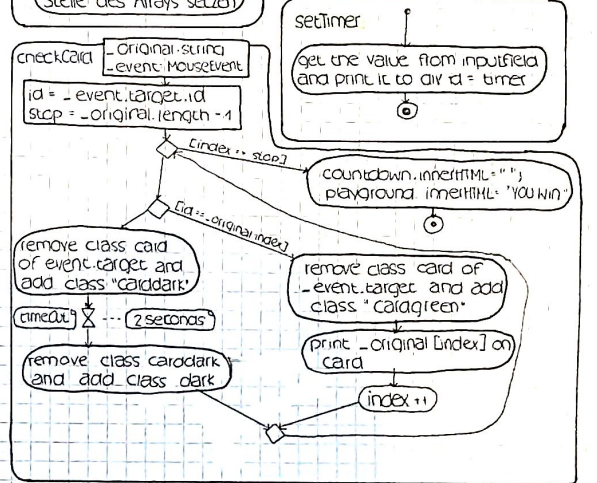 Stelle des Arrays setzen
setTimer
get the value from inputfield
and print it to div id = timer
checkCard
_original: string
_event: MouseEvent
id = _event.target.id
stop = _original.length -1
[index == stop]
countdown.innerHTML = "";
playground.innerHTML = "YOU WIN"
[id == _original.index]
remove class card
of event.target and
add class "carddark"
timeout
2 seconds
remove class carddark
and add class dark
remove class card of
_event.target and add
class "cardgreen"
print _original [index] on
card
index ++